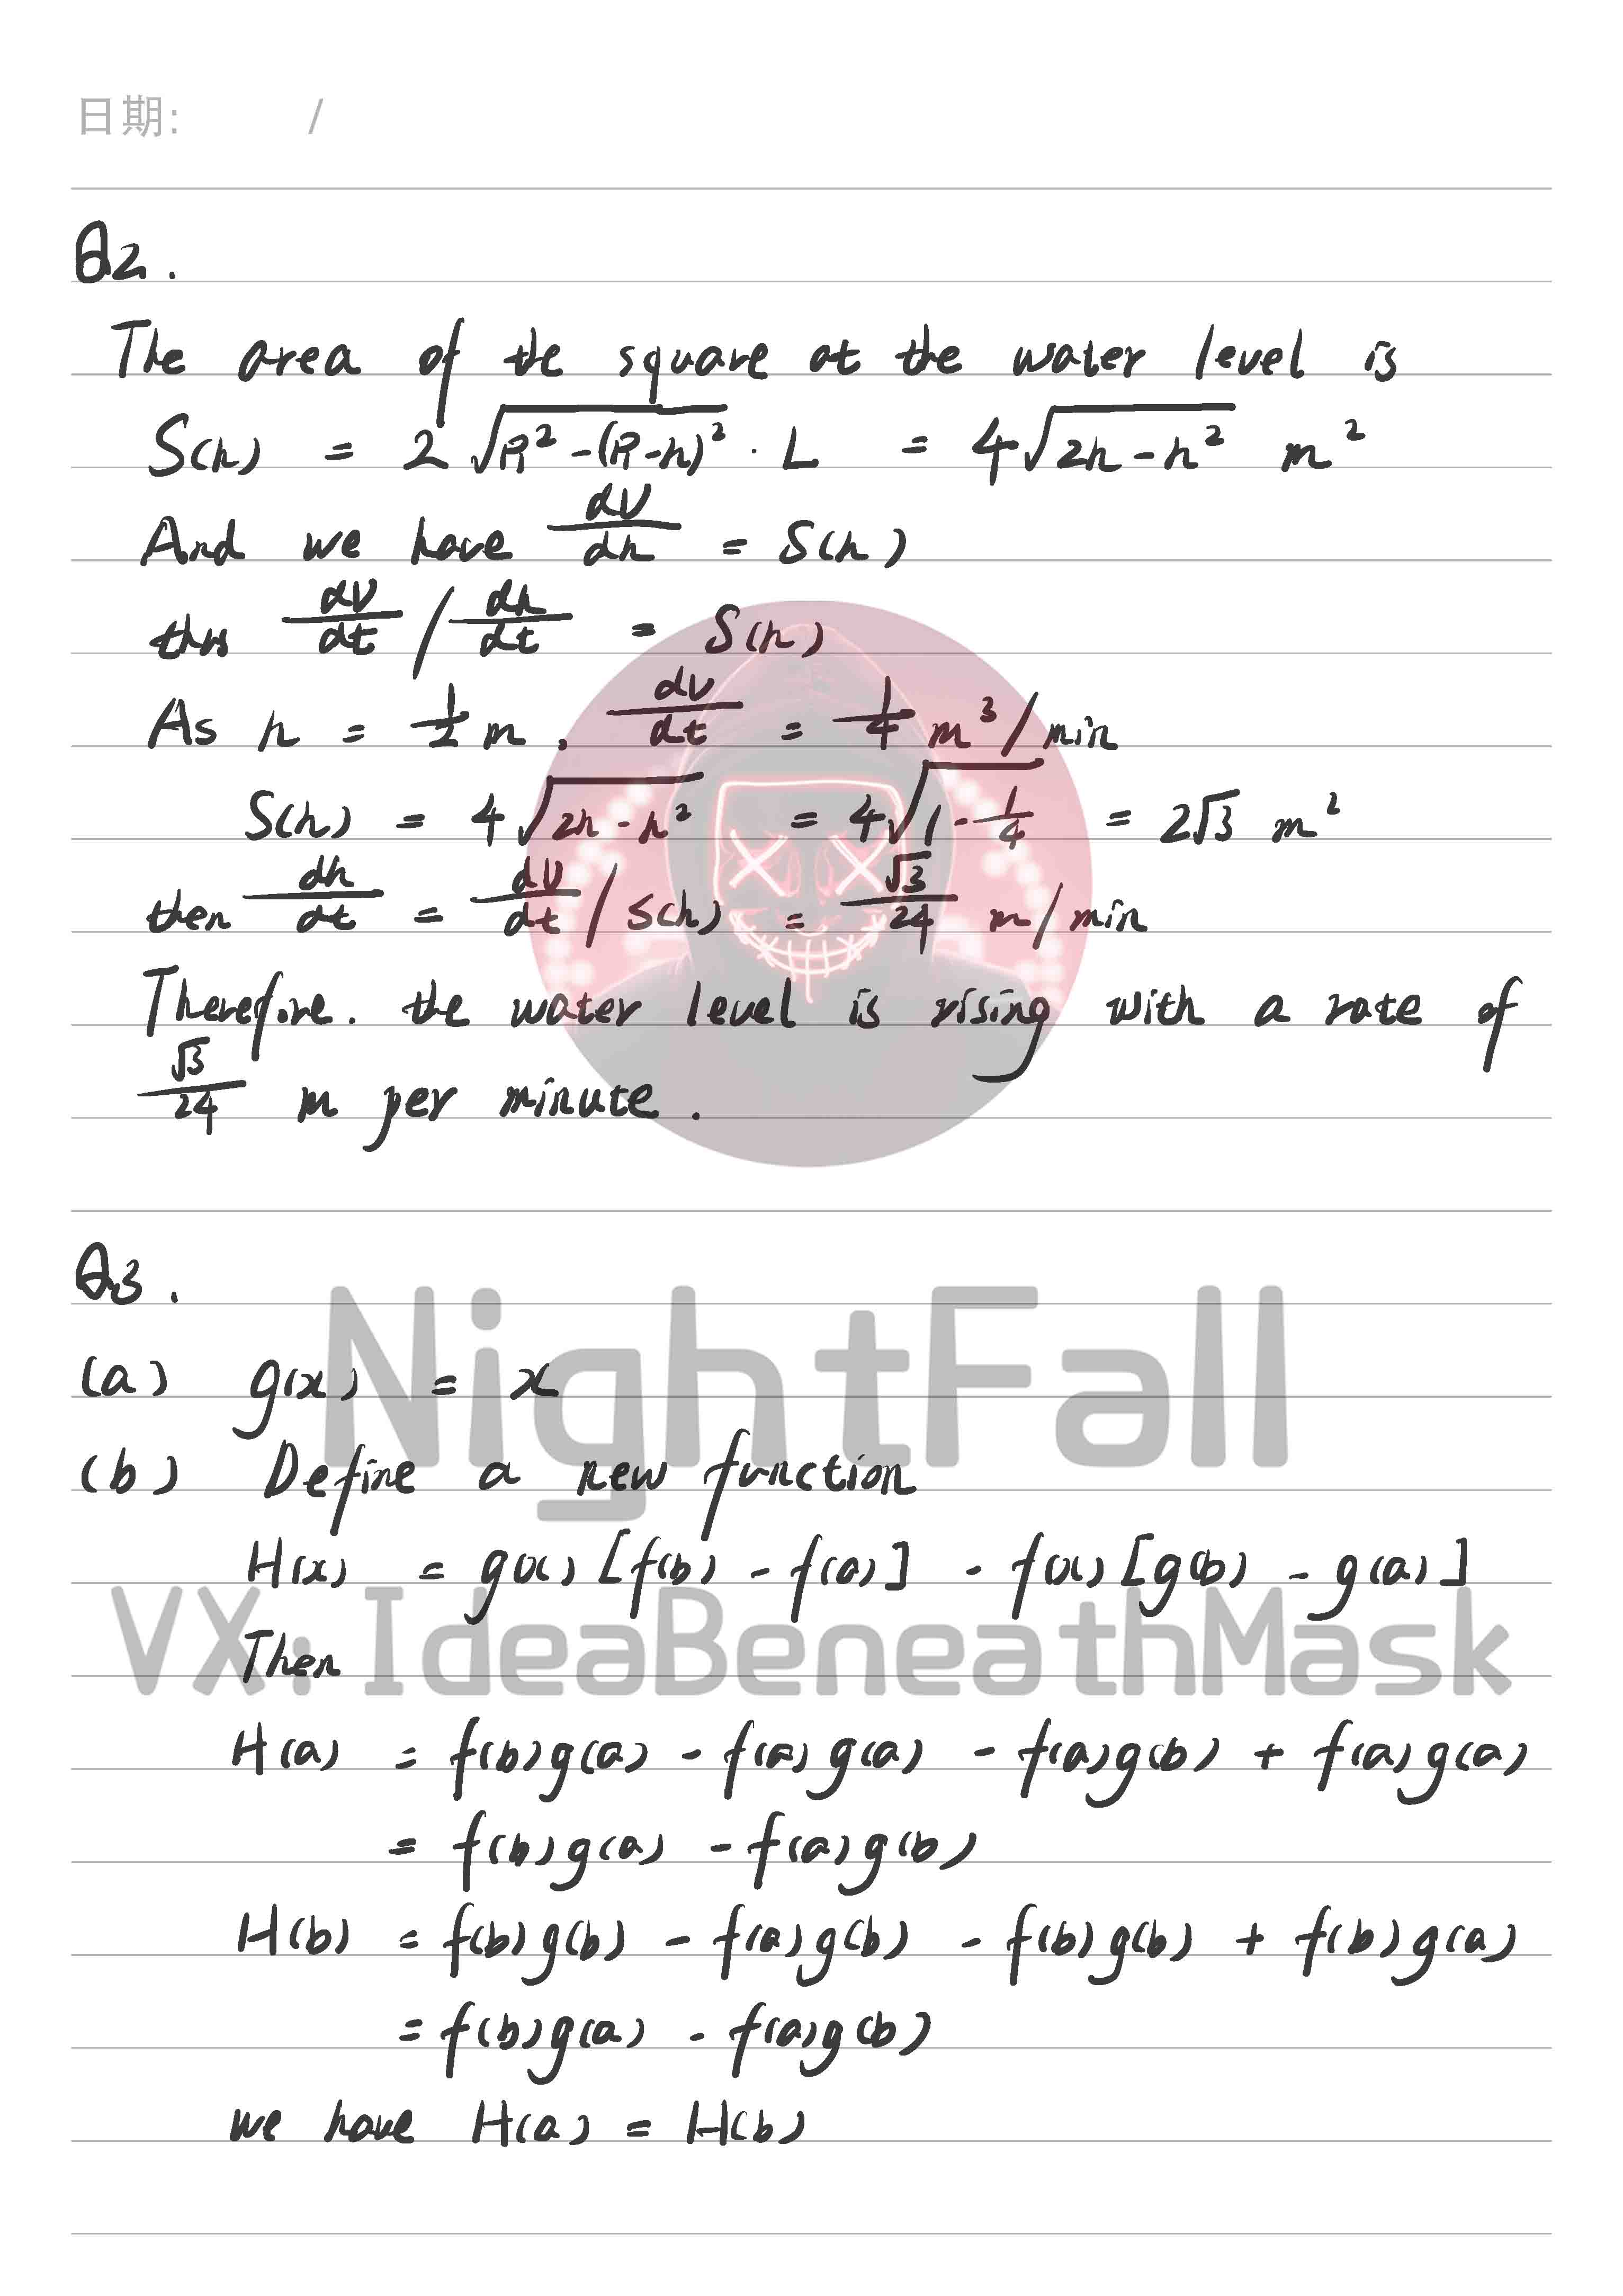 日期: /
Q2.
The area of the square at the water level is
S(h) = 2√(R² - (R-h)²) · L = 4√(2h - h²) m²
And we have dV/dh = S(h)
thus dV/dt / dh/dt = S(h)
As h = 1/2 m, dV/dt = 1/4 m³/min
S(h) = 4√(2h - h²) = 4√(1 - 1/4) = 2√3 m²
then dh/dt = dV/dt / S(h) = √3/24 m/min
Therefore. the water level is rising with a rate of
√3/24 m per minute.
Q3.
NightFall
(a) g(x) = x
(b) Define a new function
H(x) = g(x) [f(b) - f(a)] - f(x) [g(b) - g(a)]
VX: IdeaBeneathMask
Then
H(a) = f(b)g(a) - f(a)g(a) - f(a)g(b) + f(a)g(a)
= f(b)g(a) - f(a)g(b)
H(b) = f(b)g(b) - f(a)g(b) - f(b)g(b) + f(b)g(a)
= f(b)g(a) - f(a)g(b)
we have H(a) = H(b)